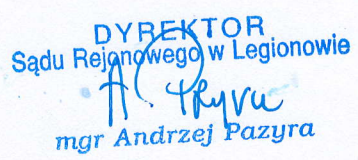 DYREKTOR
Sądu Rejonowego w Legionowie
mgr Andrzej Pazyra